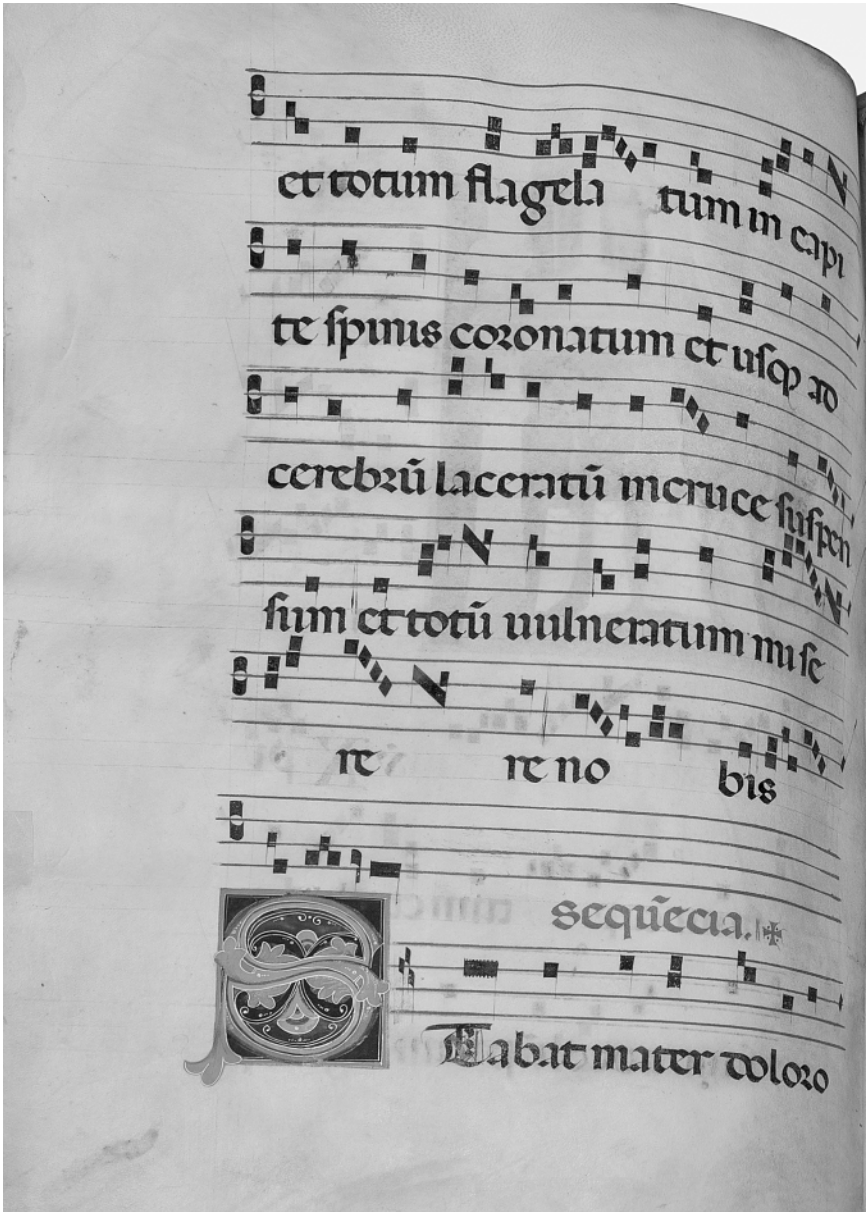 et totum flagela tum in capi
te spinis coronatum et usqꝫ ad
cerebrū laceratū in cruce suspen
sum et totū uulneratum mise
re re no bis
sequēcia.
Stabat mater doloro